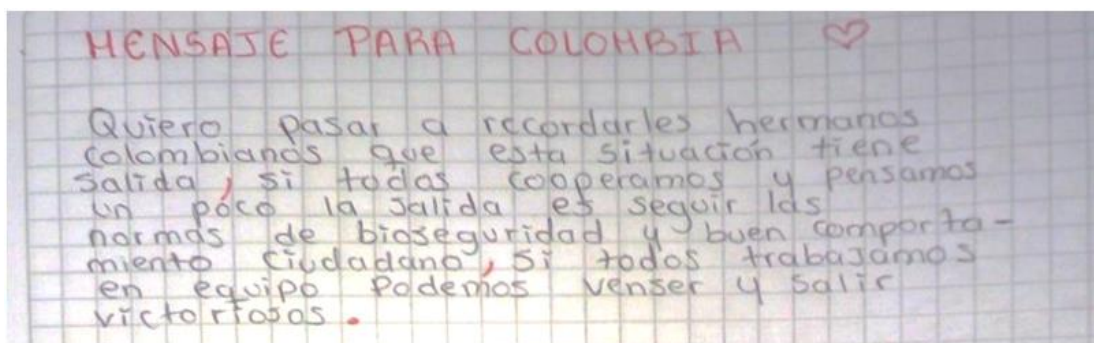 MENSAJE PARA COLOMBIA ♡
Quiero pasar a recordarles hermanos
colombianos que esta situación tiene
salida, si todos cooperamos y pensamos
un poco la salida es seguir las
normas de bioseguridad y buen comporta-
miento ciudadano, si todos trabajamos
en equipo podemos venser y salir
victoriosos.